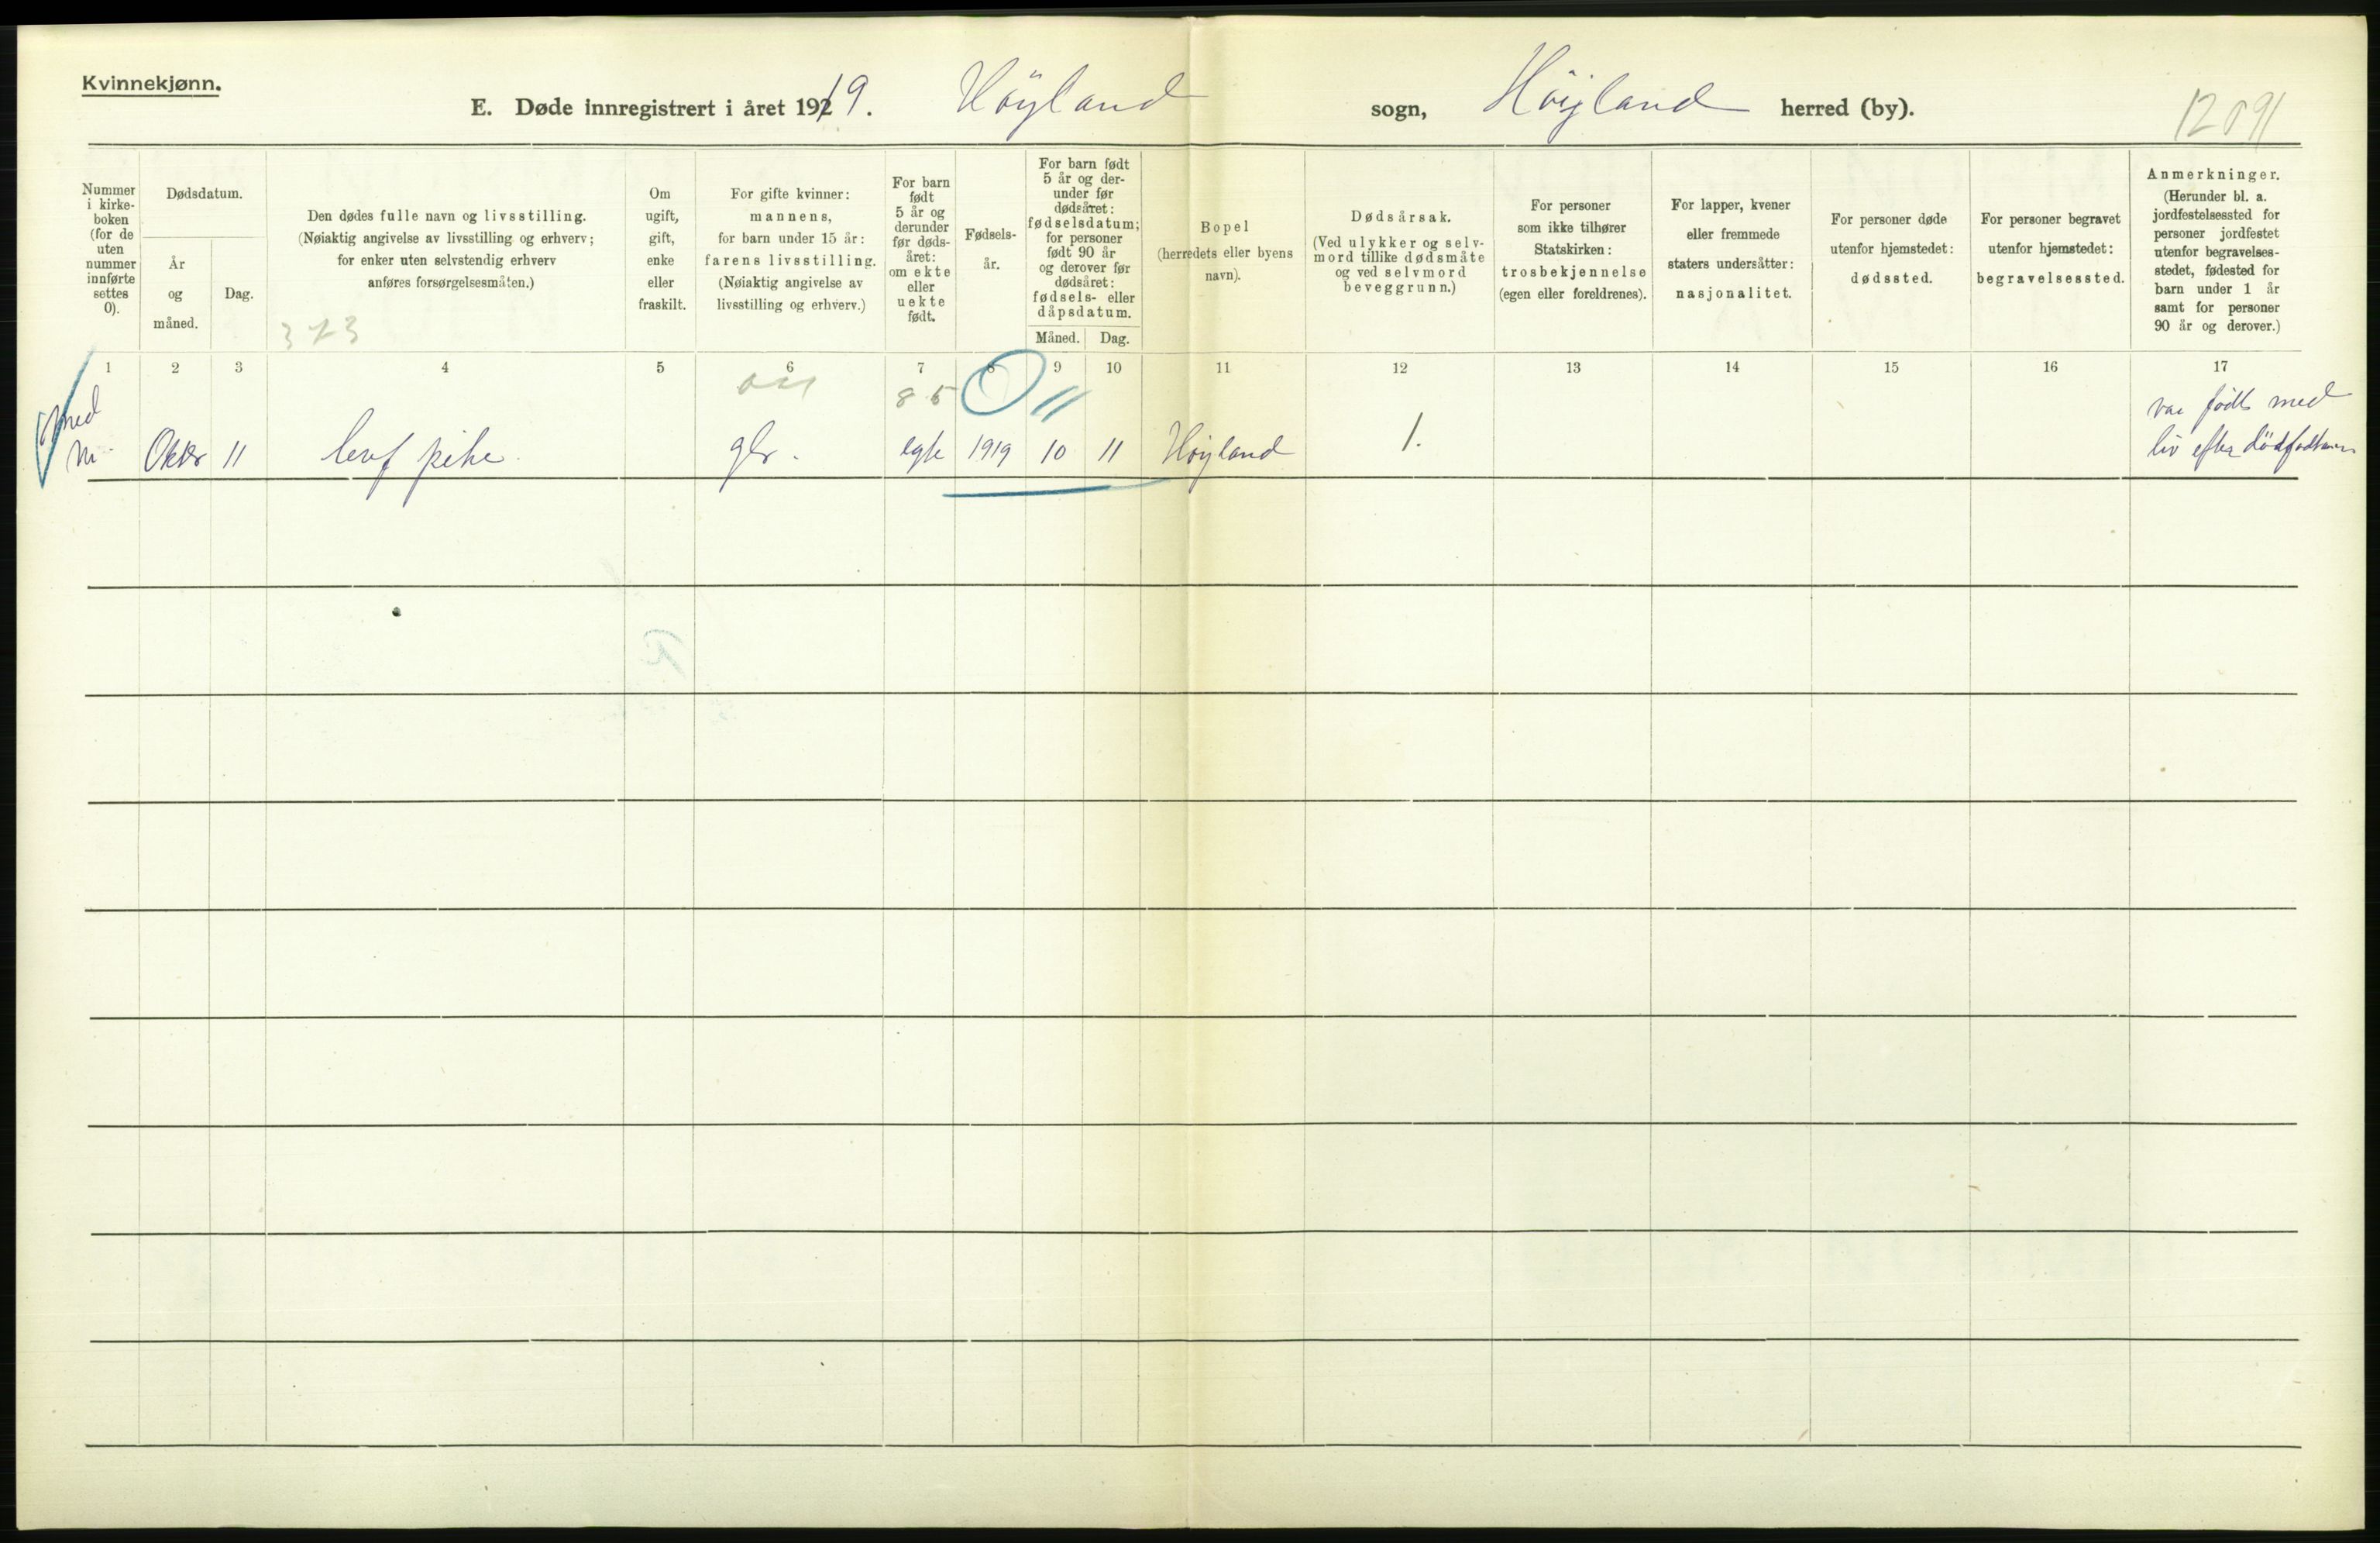 Kvinnekjønn.
E. Døde innregistrert i året 1919. Höyland sogn, Höyland herred (by).
12091
Nummer
i kirke-
boken
(for de
uten
nummer
innførte
settes
0).
Dødsdatum.
År
og
måned.
Dag.
Den dødes fulle navn og livsstilling.
(Nøiaktig angivelse av livsstilling og erhverv;
for enker uten selvstendig erhverv
anføres forsørgelsesmåten.)
373
Om
ugift,
gift,
enke
eller
fraskilt.
For gifte kvinner:
mannens,
for barn under 15 år:
farens livsstilling.
(Nøiaktig angivelse av
livsstilling og erhverv.)
For barn
født
5 år og
derunder
før døds-
året:
om ekte
eller
uekte
født.
Fødsels-
år.
For barn født
5 år og der-
under før
dødsåret:
fødselsdatum;
for personer
født 90 år
og derover før
dødsåret:
fødsels- eller
dåpsdatum.
Måned. Dag.
Bopel
(herredets eller byens
navn).
Dødsårsak.
(Ved ulykker og selv-
mord tillike dødsmåte
og ved selvmord
beveggrunn.)
For personer
som ikke tilhører
Statskirken:
trosbekjennelse
(egen eller foreldrenes).
For lapper, kvener
eller fremmede
staters undersåtter:
nasjonalitet.
For personer døde
utenfor hjemstedet:
dødssted.
For personer begravet
utenfor hjemstedet:
begravelsessted.
Anmerkninger.
(Herunder bl. a.
jordfestelsessted for
personer jordfestet
utenfor begravelses-
stedet, fødested for
barn under 1 år
samt for personer
90 år og derover.)
1 2 3 4 5 6 7 8 9 10 11 12 13 14 15 16 17
85 0 11
Oktbr 11 levf pike. gbr. egte 1919 10 11 Höyland 1.
var födt med
liv efter